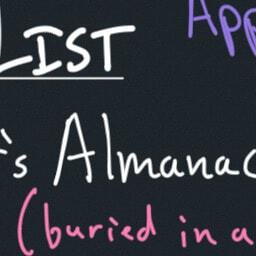 LIST
App
's Almanac
(buried in a